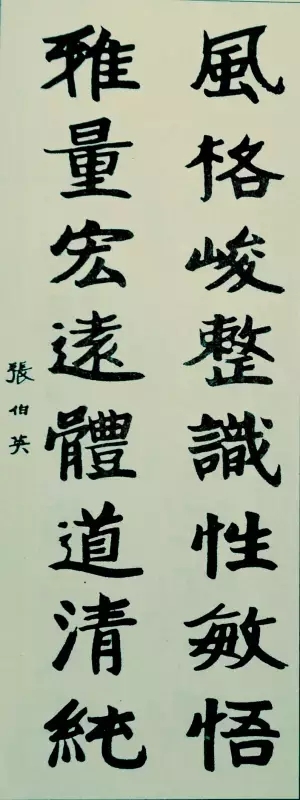 風格峻整識性敏悟
雅量宏遠體道清純
張伯英